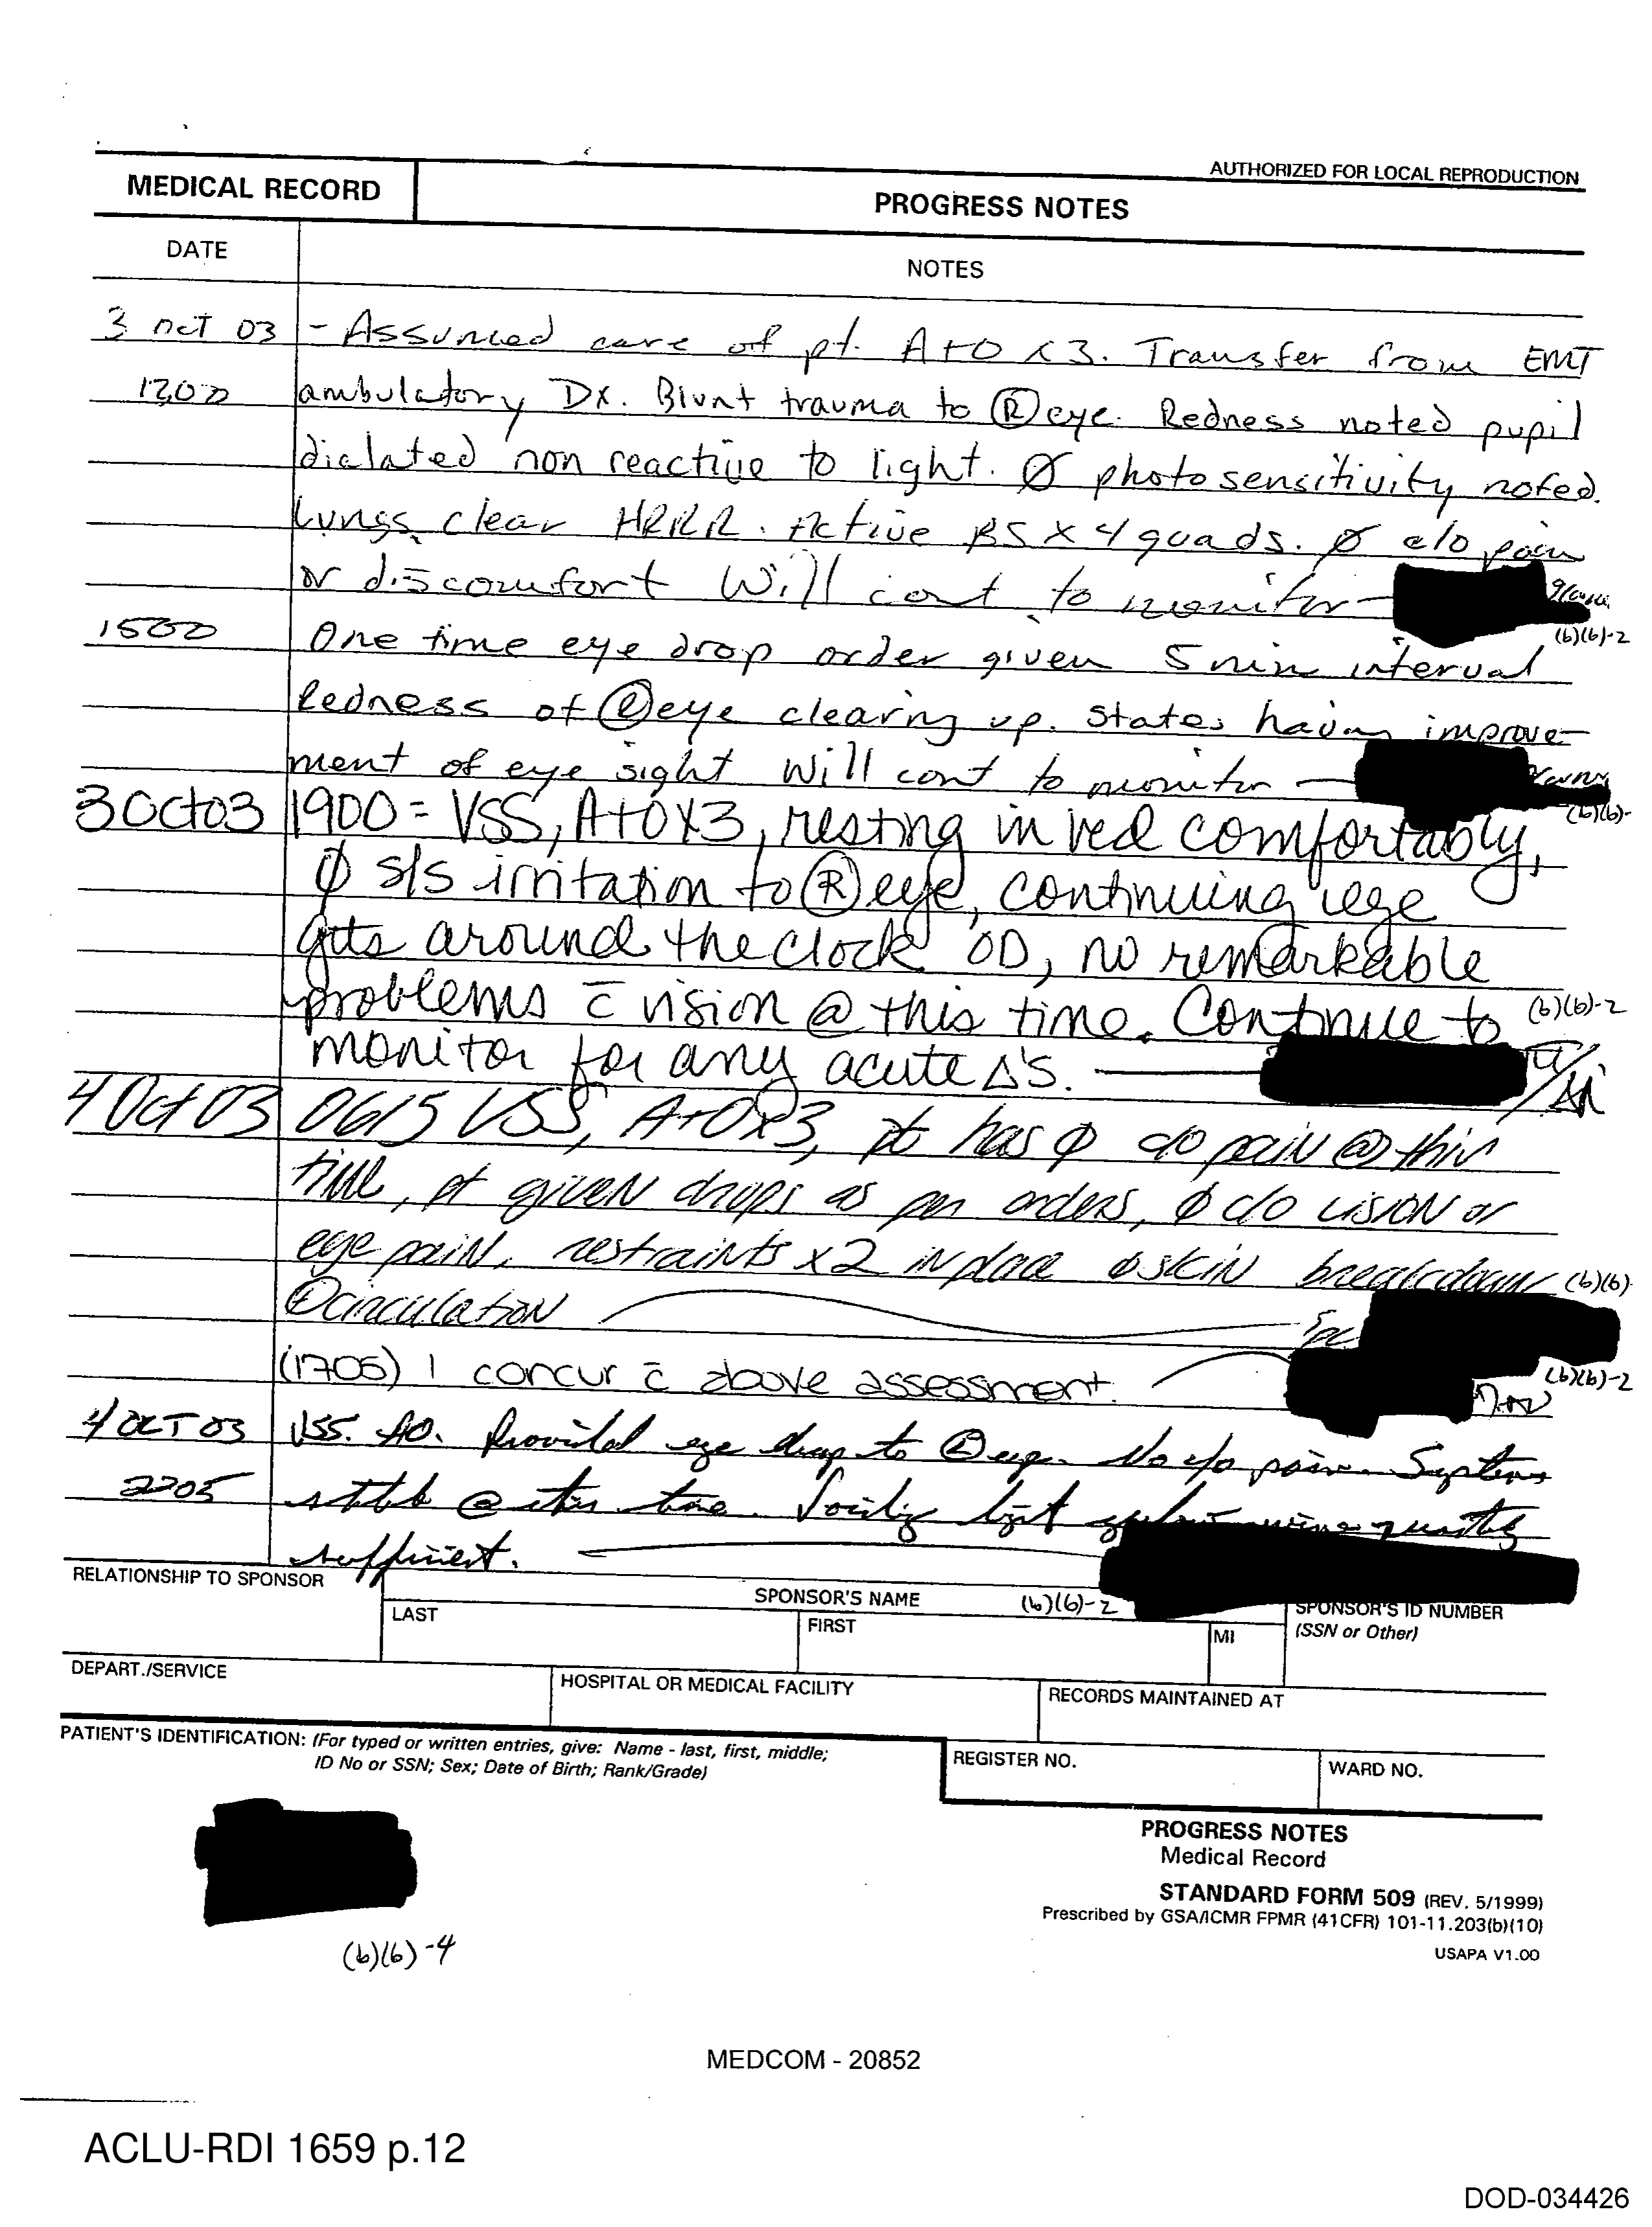 AUTHORIZED FOR LOCAL REPRODUCTION
MEDICAL RECORD PROGRESS NOTES
DATE NOTES
3 oct 03 - Assumed care of pt. A+O x3. Transfer from EMT
1200 ambulatory Dx. Blunt trauma to Ⓡ eye. Redness noted pupil
diclated non reactive to light. Ø photosensitivity noted.
Lungs clear HRRR. Active BS x 4 quads. Ø c/o pain
or discomfort Will cont to monitor
(b)(6)-2
1500 One time eye drop order given 5 min interval
Redness of Ⓡ eye clearing up. States having improve-
ment of eye sight Will cont to monitor
(b)(6)-
3 Oct 03 1900 = VSS, A+OX3, resting in bed comfortably,
Ø s/s irritation to Ⓡ eye, continuing eye
gtts around the clock OD, no remarkable
problems c̄ vision @ this time. Continue to (b)(6)-2
monitor for any acute Δ's.
4 Oct 03 0615 VSS, A+Ox3, pt has Ø c/o pain @ this
time, pt given drops as per orders, Ø c/o vision or
eye pain, restraints x2 in place Ø skin breakdown (b)(6)-
⊕ circulation Spc
(1705) I concur c̄ above assessment. (b)(6)-2
4 OCT 03 VSS. AO. Provided eye drop to Ⓡ eye. No c/o pain. Systems
2205 stable @ this time. Voiding light yellow urine quantity
sufficient.
RELATIONSHIP TO SPONSOR SPONSOR'S NAME (b)(6)-2 SPONSOR'S ID NUMBER
LAST FIRST MI (SSN or Other)
DEPART./SERVICE HOSPITAL OR MEDICAL FACILITY RECORDS MAINTAINED AT
PATIENT'S IDENTIFICATION: (For typed or written entries, give: Name - last, first, middle;
ID No or SSN; Sex; Date of Birth; Rank/Grade)
REGISTER NO. WARD NO.
PROGRESS NOTES
Medical Record
STANDARD FORM 509 (REV. 5/1999)
Prescribed by GSA/ICMR FPMR (41CFR) 101-11.203(b)(10)
USAPA V1.00
(b)(6)-4
MEDCOM - 20852
ACLU-RDI 1659 p.12
DOD-034426